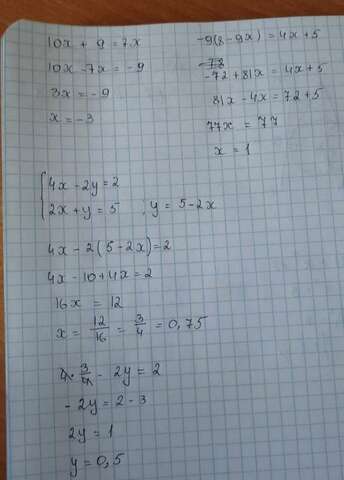 10x + 9 = 7x
10x - 7x = -9
3x = -9
x = -3
-9(8 - 9x) = 4x + 5
-72 + 81x = 4x + 5
81x - 4x = 72 + 5
77x = 77
x = 1
4x - 2y = 2
2x + y = 5 ; y = 5 - 2x
4x - 2(5 - 2x) = 2
4x - 10 + 4x = 2
16x = 12
x = 12/16 = 3/4 = 0,75
4 · 3/4 - 2y = 2
-2y = 2 - 3
2y = 1
y = 0,5